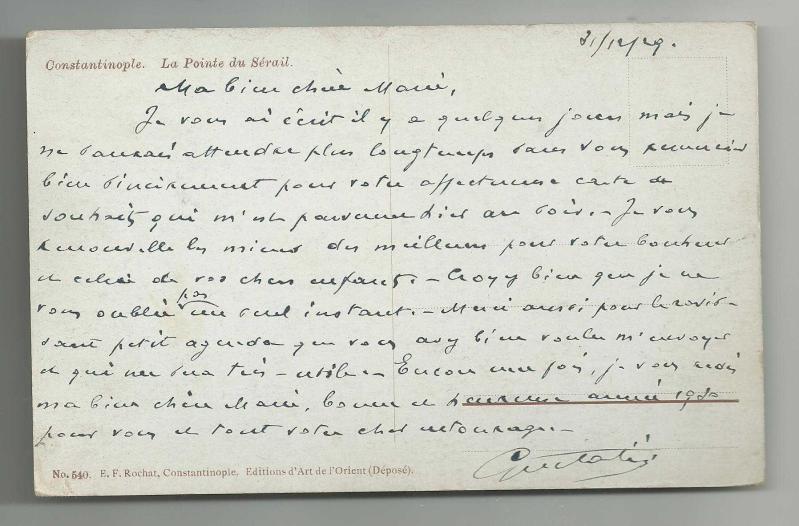 31/12/29.
Constantinople. La Pointe du Sérail.
Ma bien chère Marie,
Je vous ai écrit il y a quelques jours mais je
ne saurais attendre plus longtemps sans vous remercier
bien sincèrement pour votre affectueuse carte de
souhaits qui m'est parvenue hier au soir. - Je vous
renouvelle les miens des meilleurs pour votre bonheur
et celui de vos chers enfants. - Croyez bien que je ne
vous oublie pas un seul instant. - Merci aussi pour le ravis-
sant petit agenda que vous avez bien voulu m'envoyer
et qui me sera très - utile. - Encore une fois, je vous redis
ma bien chère Marie, bonne et heureuse année 1930
pour vous et tout votre cher entourage. -
No. 540. E. F. Rochat, Constantinople. Editions d'Art de l'Orient (Déposé).